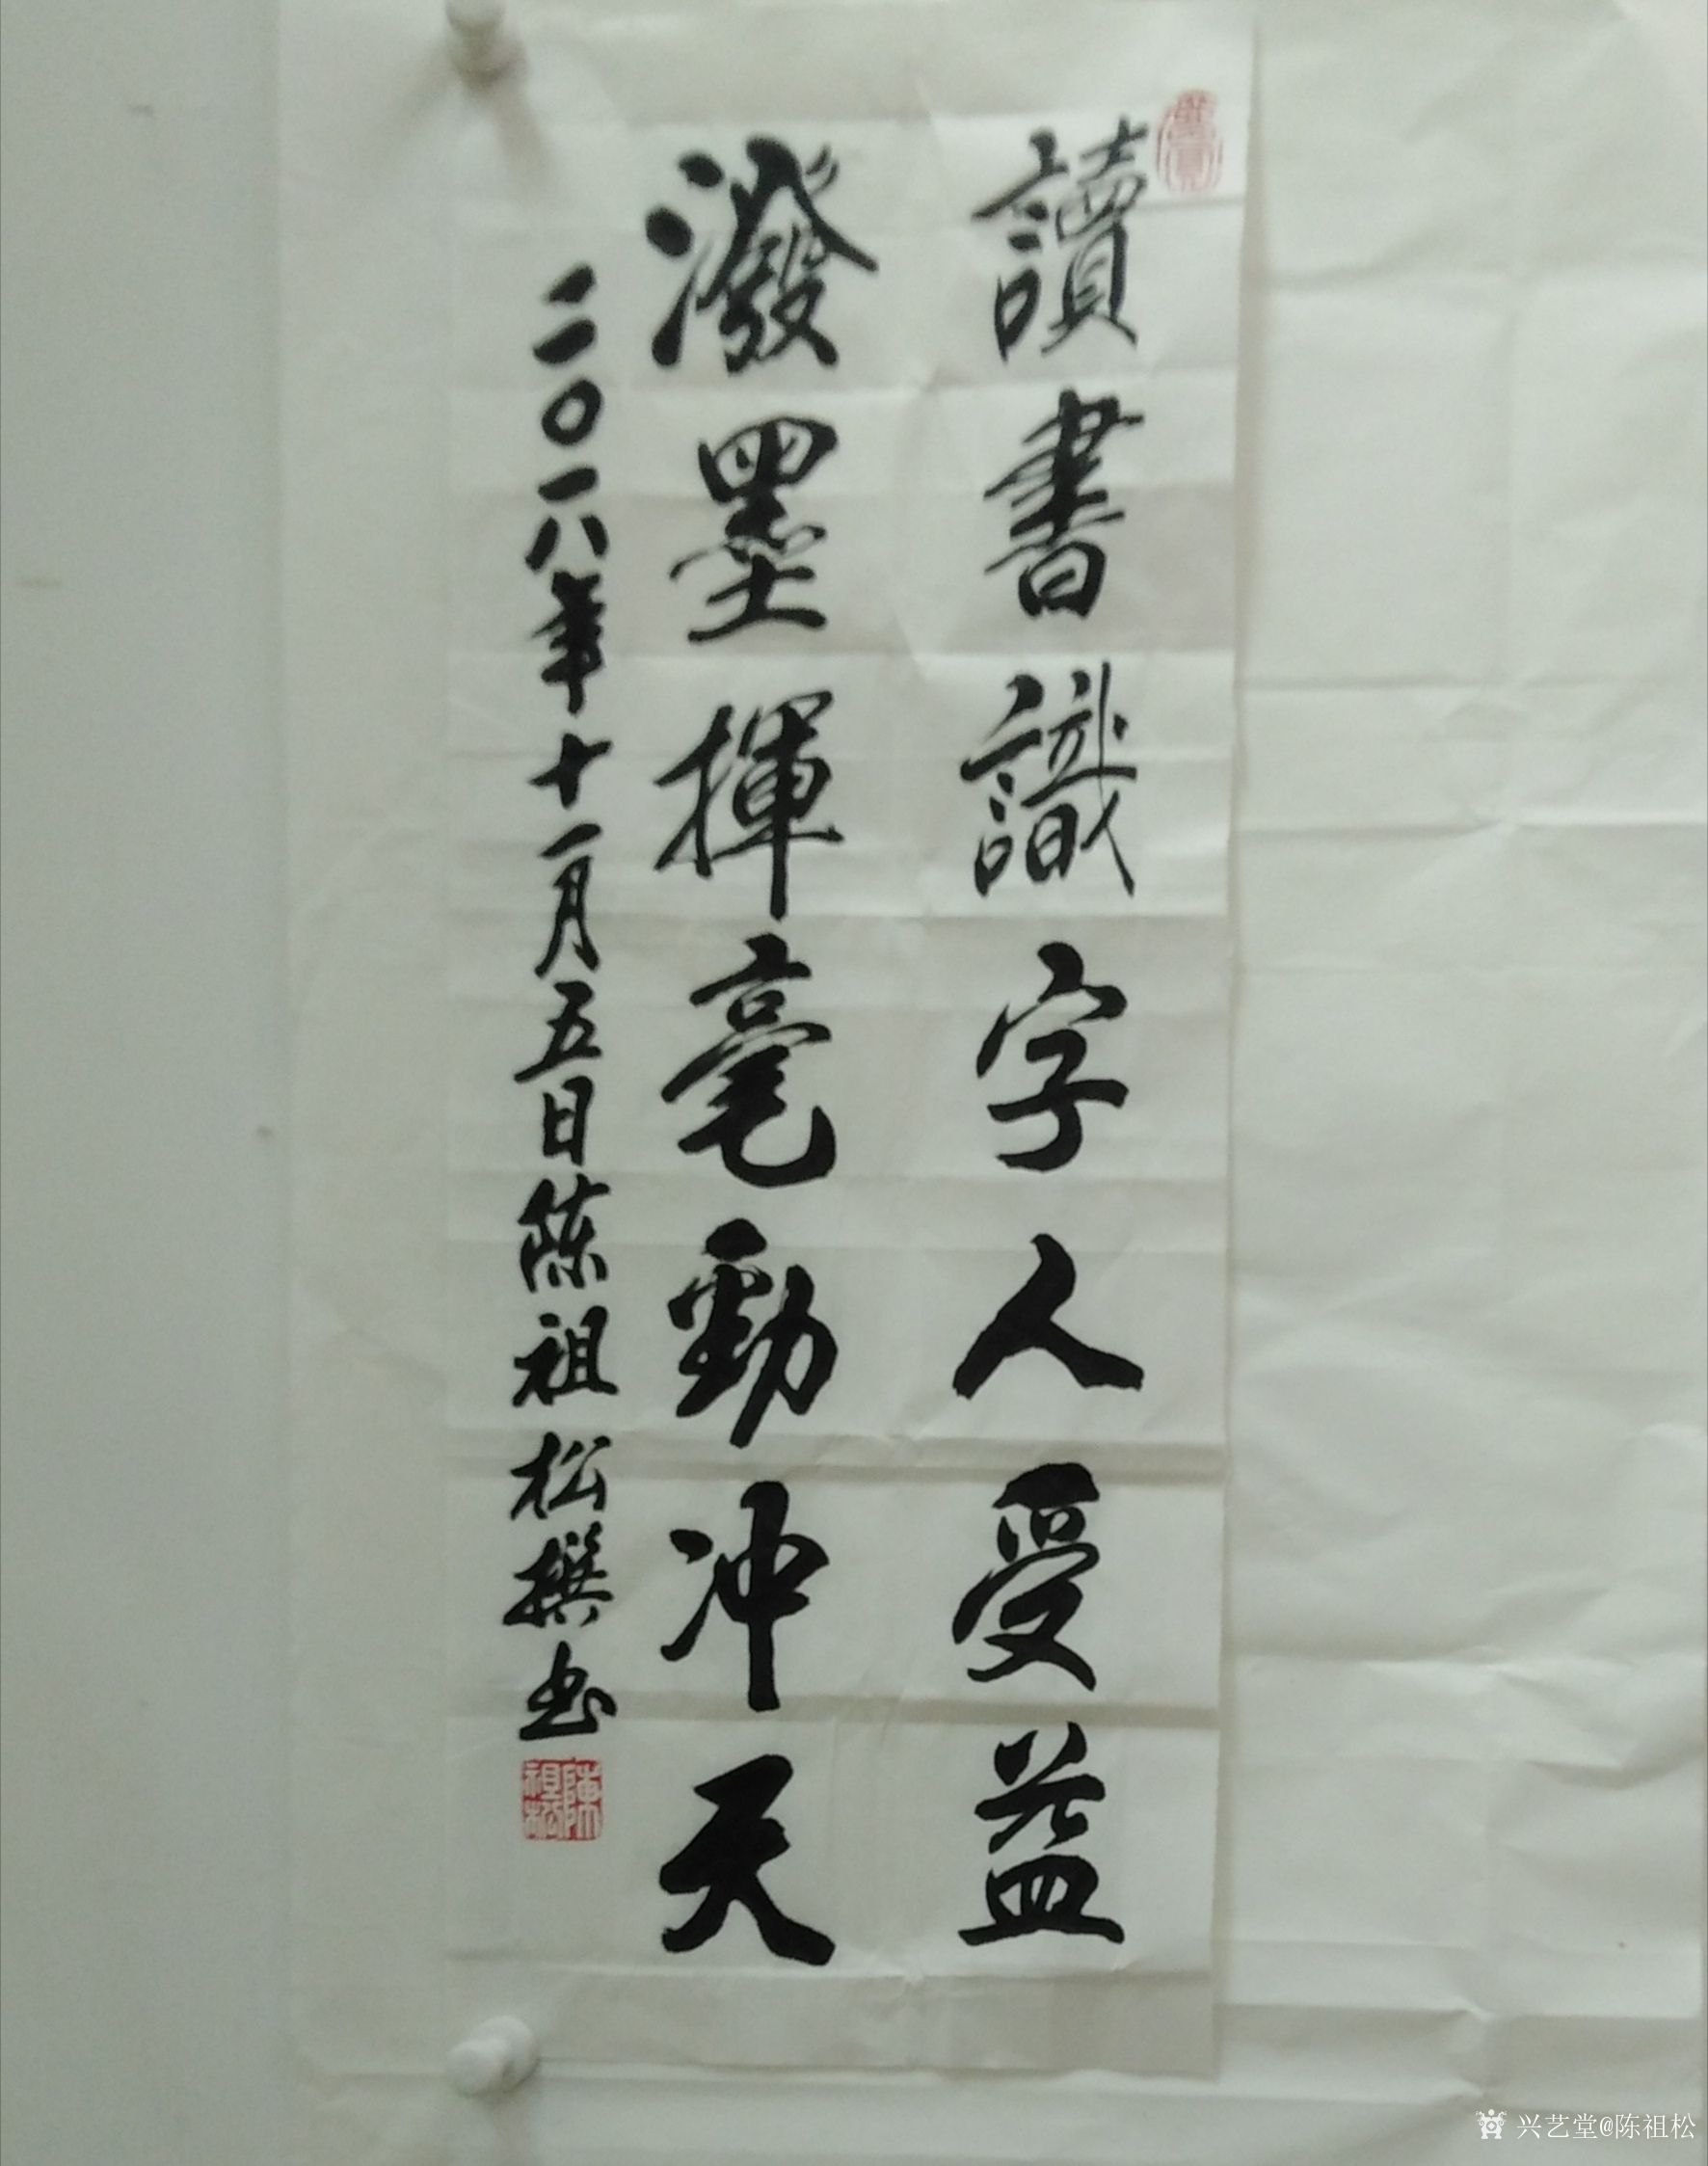 讀書識字人受益
潑墨揮毫勁冲天
二〇一八年十一月五日陈祖松撰书
陳祖松
兴艺堂@陈祖松